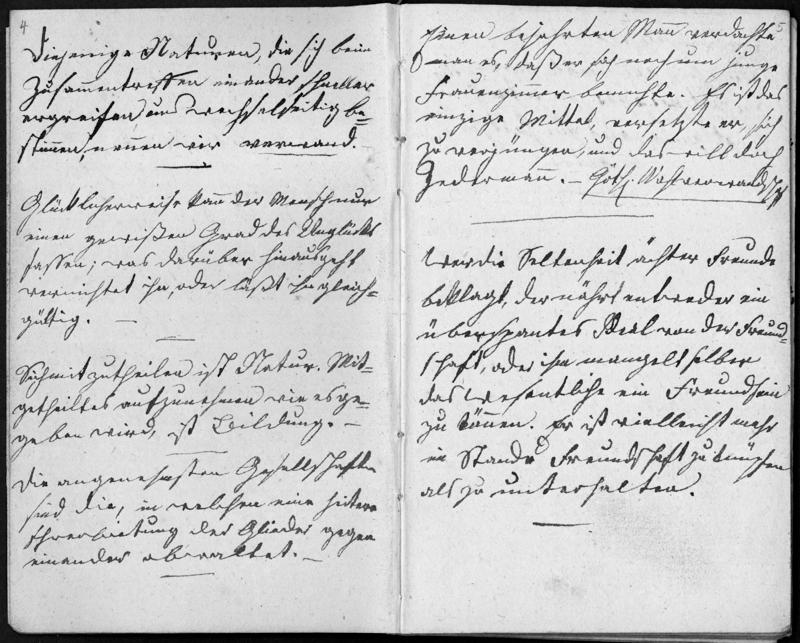 4
Diejenige Naturen, die sich beim
Zusammentreffen einander schneller
ergreifen und wechselseitig be=
stimmen, nennen wir verwand.
Glücklicherweise kann der Mensch nur
einen gewißen Grad des Unglücks
fassen; was darüber hinausgeht
vernichtet ihn, oder läßt ihn gleich=
gültig. —
Sich mitzutheilen ist Natur. Mit=
getheiltes aufzunehmen wie es ge=
geben wird, ist Bildung. —
Die angenehmsten Gesellschaften
sind die, in welchen eine heitere
Ehrerbietung der Glieder gegen
einander obwaltet. —
5
Einen bejahrten Mann verdachte
man es, daß er sich noch um junge
Frauenzimmer bemühte. Es ist das
einzige Mittel, versetzte er, sich
zu verjüngen, und das will doch
Jedermann. — Göth. Wahlverwandsch
Wer die Seltenheit ächter Freunde
beklagt, der nährt entweder ein
überspantes Ideal von der Freund=
schaft, oder ihm mangelt selber
das wesentliche ein Freund sein
zu können. Er ist vielleicht mehr
im Stande Freundschaft zu knüpfen
als zu unterhalten.